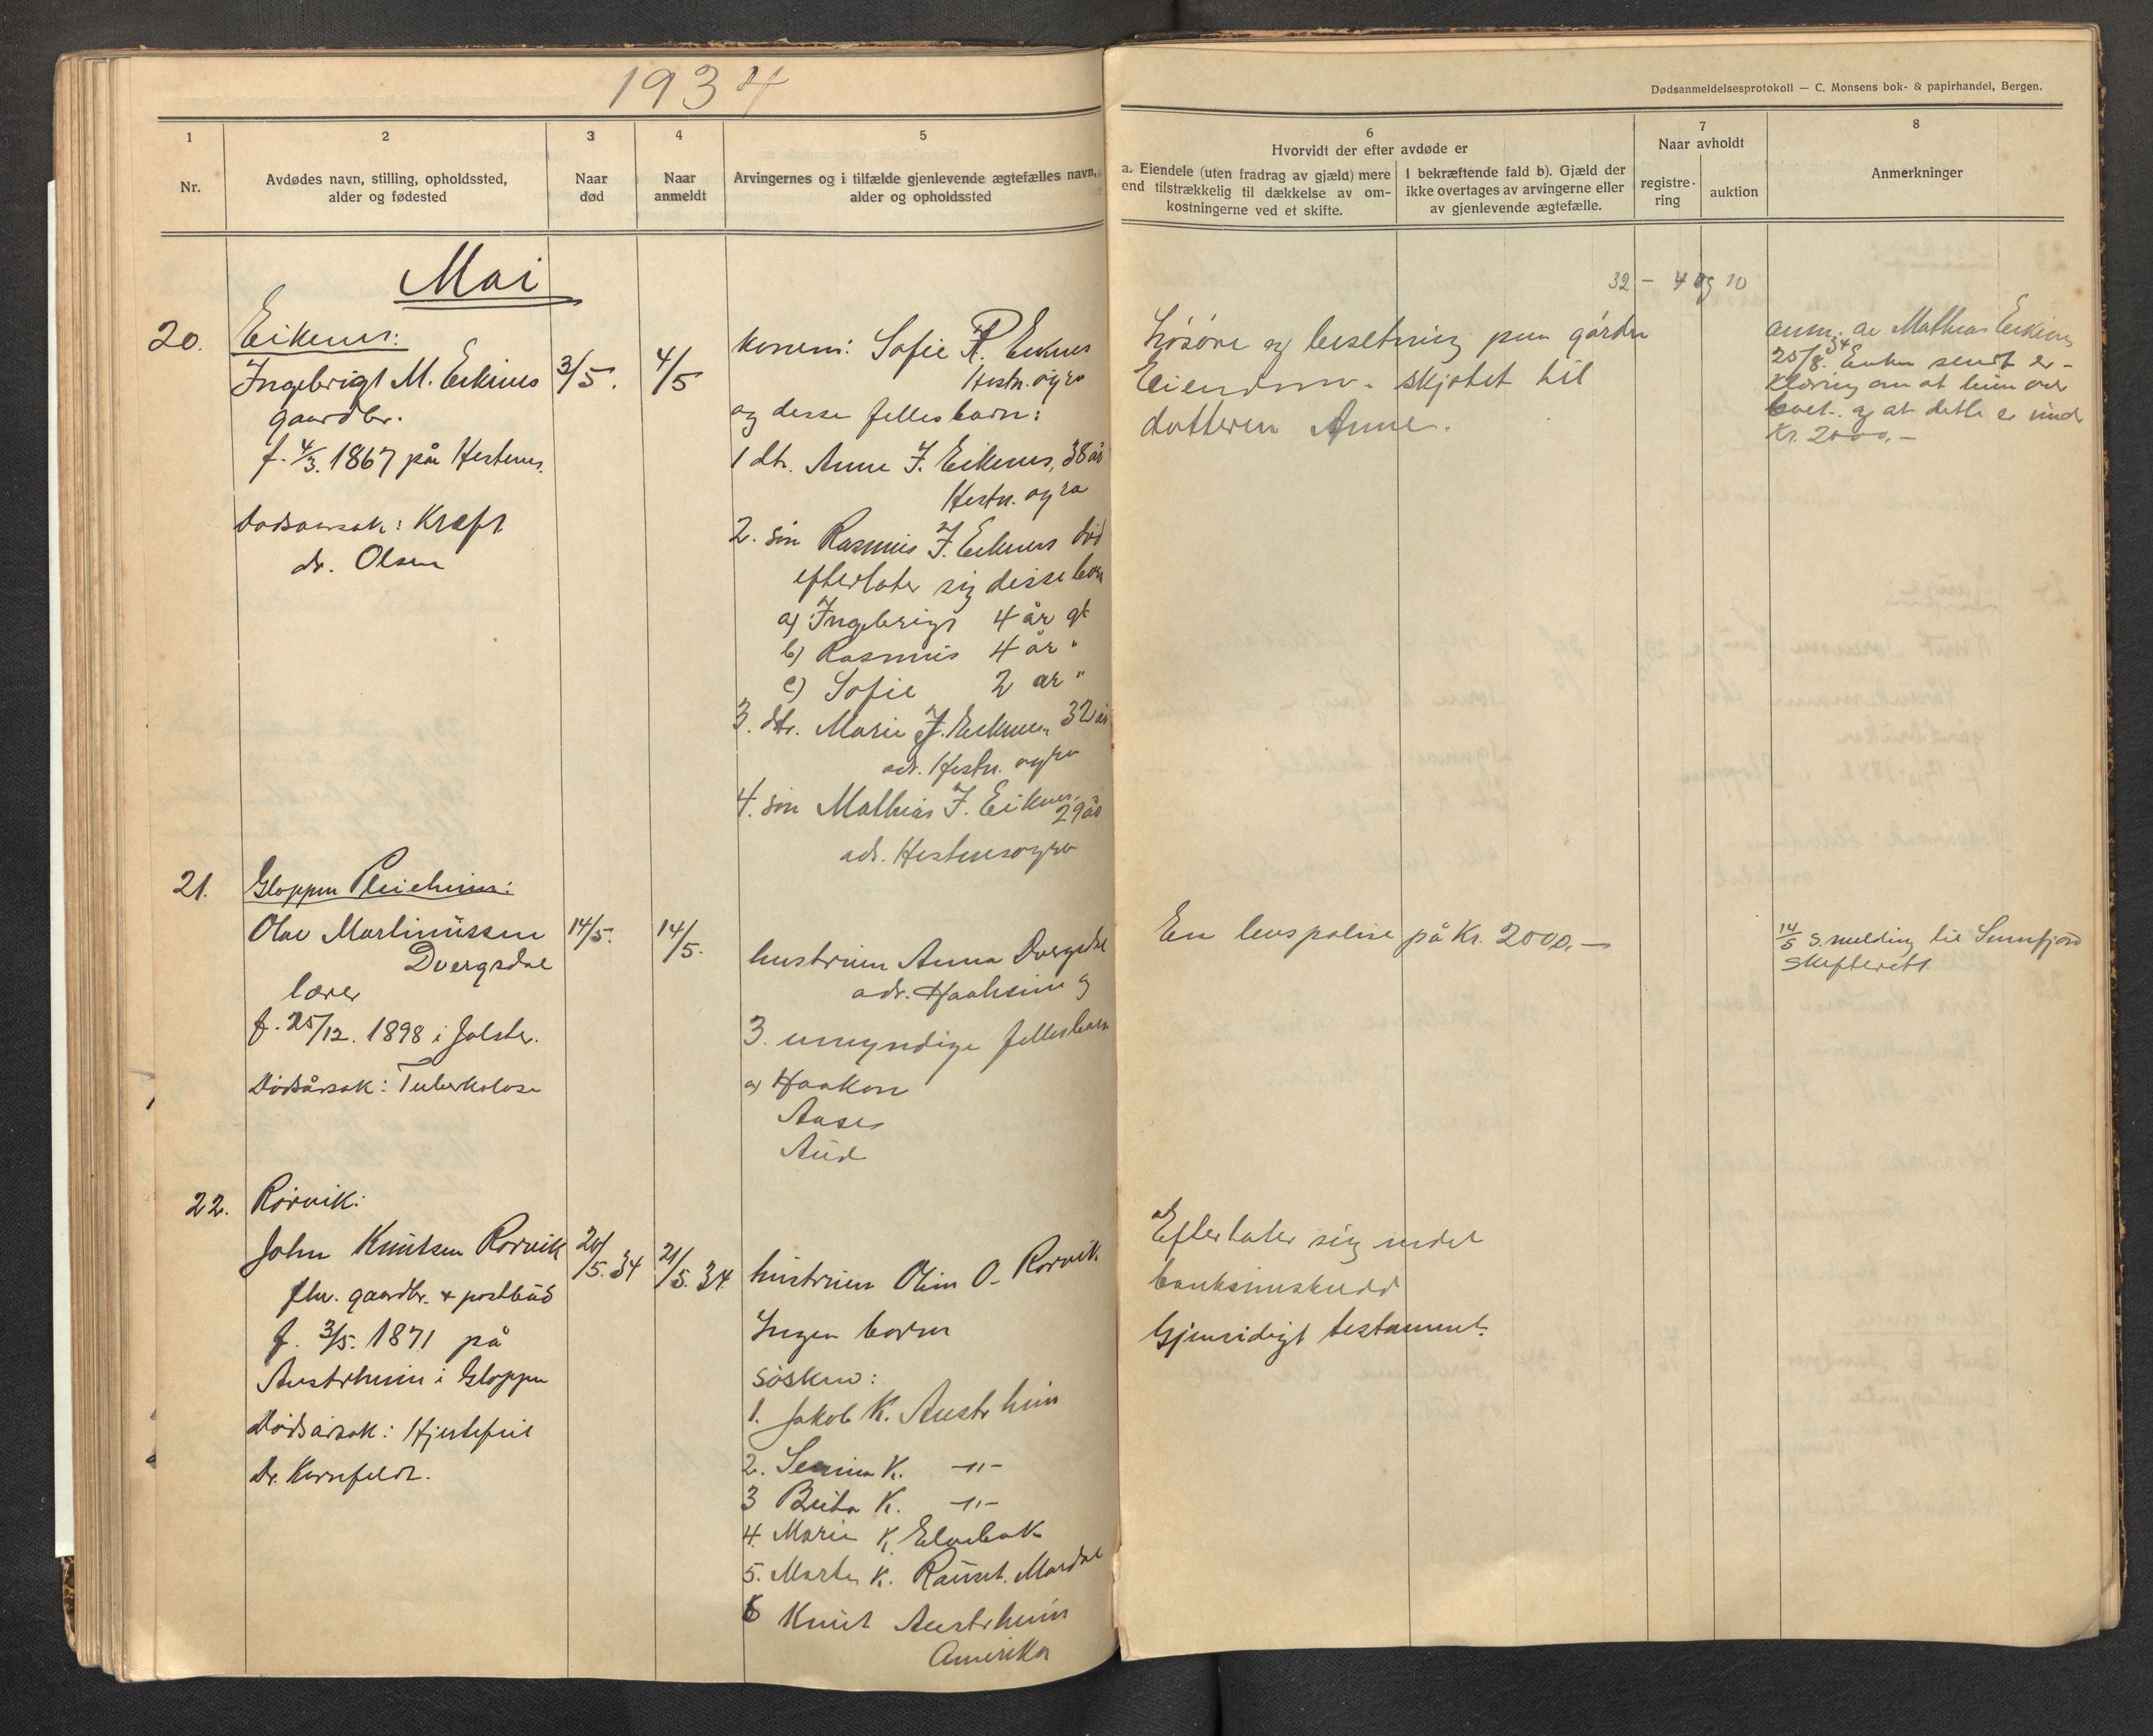 1934
Dødsanmeldelsesprotokoll — C. Monsens bok- & papirhandel, Bergen.
1
Nr.
2
Avdødes navn, stilling, opholdssted,
alder og fødested
3
Naar
død
4
Naar
anmeldt
5
Arvingernes og i tilfælde gjenlevende ægtefælles navn,
alder og opholdssted
6
Hvorvidt der efter avdøde er
a. Eiendele (uten fradrag av gjæld) mere
end tilstrækkelig til dækkelse av om-
kostningerne ved et skifte.
I bekræftende fald b). Gjæld der
ikke overtages av arvingerne eller
av gjenlevende ægtefælle.
7
Naar avholdt
registre-
ring
auktion
8
Anmerkninger
Mai
20.
Eiknes:
Ingebrigt M. Eiknes
gaardbr.
f. 4/3. 1867 på Hestenes.
Dødsårsak: Kreft
dr. Olsen
3/5.
4/5
konen: Sofie R. Eiknes
Hestn.øyra
og disse fellesbarn:
1 dtr. Anne I. Eiknes, 38 år
Hestn. øyra
2. søn Rasmus I. Eiknes død
efterlater sig disse barn
a) Ingebrigt 4 år gl
b) Rasmus 4 år "
c) Sofie 2 år "
3. dtr. Marie I. Eiknes, 32 år
adr. Hestn. øyra
4. søn Mathias I. Eiknes, 29 år
adr. Hestenesøyra
32 - 4 og 10
Løsøre og besetning paa gården
Eiendom. skjøtet til
datteren Anne.
anm. av Mathias Eiknes
25/8.34 Enken sendt er-
klæring om at hun over
boet. og at dette er under
Kr. 2000,-
21.
Gloppen Pleieheim:
Olav Martinussen
Dvergsdal
lærer
f. 25/12. 1898 i Jølster.
Dødsårsak: Tuberkolose
14/5.
14/5.
hustruen Anna Dvergsdal
adr. Haaheim og
3 umyndige fellesbarn
a) Haakon
Aase
Aud
En livspolise på Kr. 2000,-
14/5 s. melding til Sunnfjord
skifterett.
22.
Rørvik:
John Knutsen Rørvik
fhv. gaardbr. & postbud
f. 3/5. 1871 på
Austrheim i Gloppen
Dødsårsak: Hjertefeil
Dr. Kornfeldt.
20/5. 34
21/5. 34
hustruen Oline O. Rørvik
Ingen barn
søsken:
1. Jakob K. Austrheim
2. Semine K. -"-
3 Brita K. -"-
4. Marie K. Elvebak
5. Marta K. Rauset. Mardal
6 Knut Austrheim
Amerika
a) Efterlater sig endel
bankinnskudd
Gjensidigt testament.